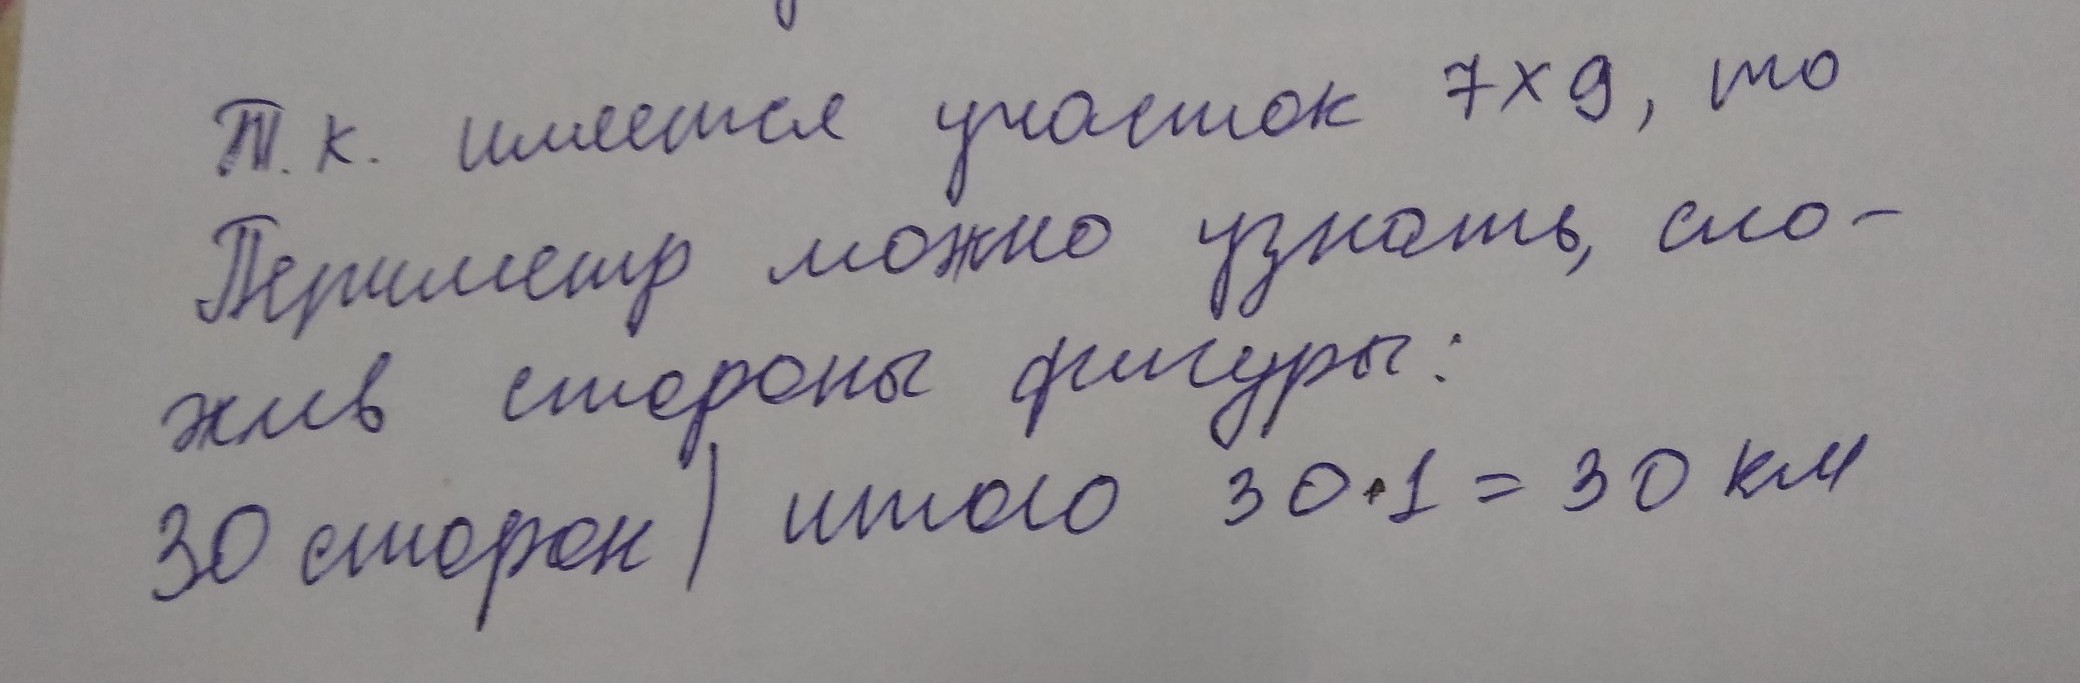 Т.к. имеется участок 7×9, то
Периметр можно узнать, сло-
жив стороны фигуры:
30 сторон | итого 30·1 = 30 км